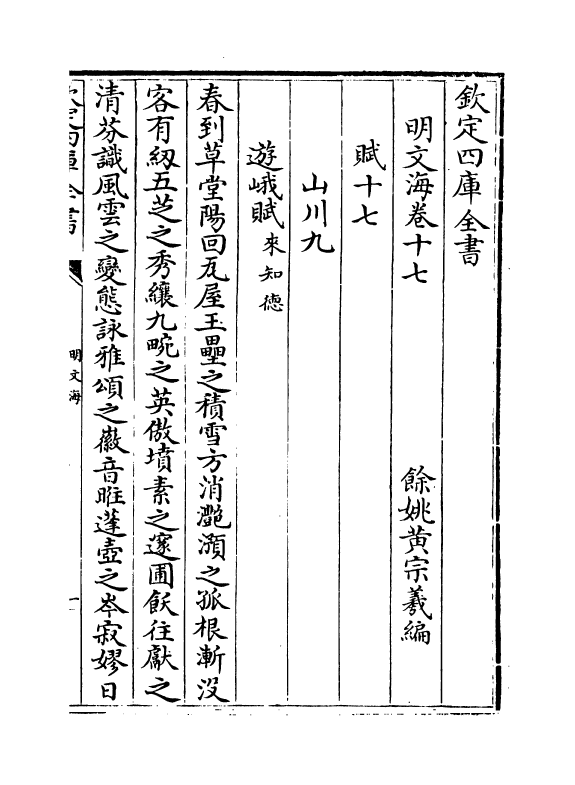 欽定四庫全書
明文海卷十七
餘姚黃宗羲編
賦十七
山川九
遊峨賦來知德
春到草堂陽回瓦屋玉壘之積雪方消灔澦之孤根漸没
客有紉五芝之秀纕九畹之英傲墳素之邃圃飫往獻之
清芬識風雲之變態詠雅頌之徽音睢蓬壺之岑寂嫪日
明文海
一